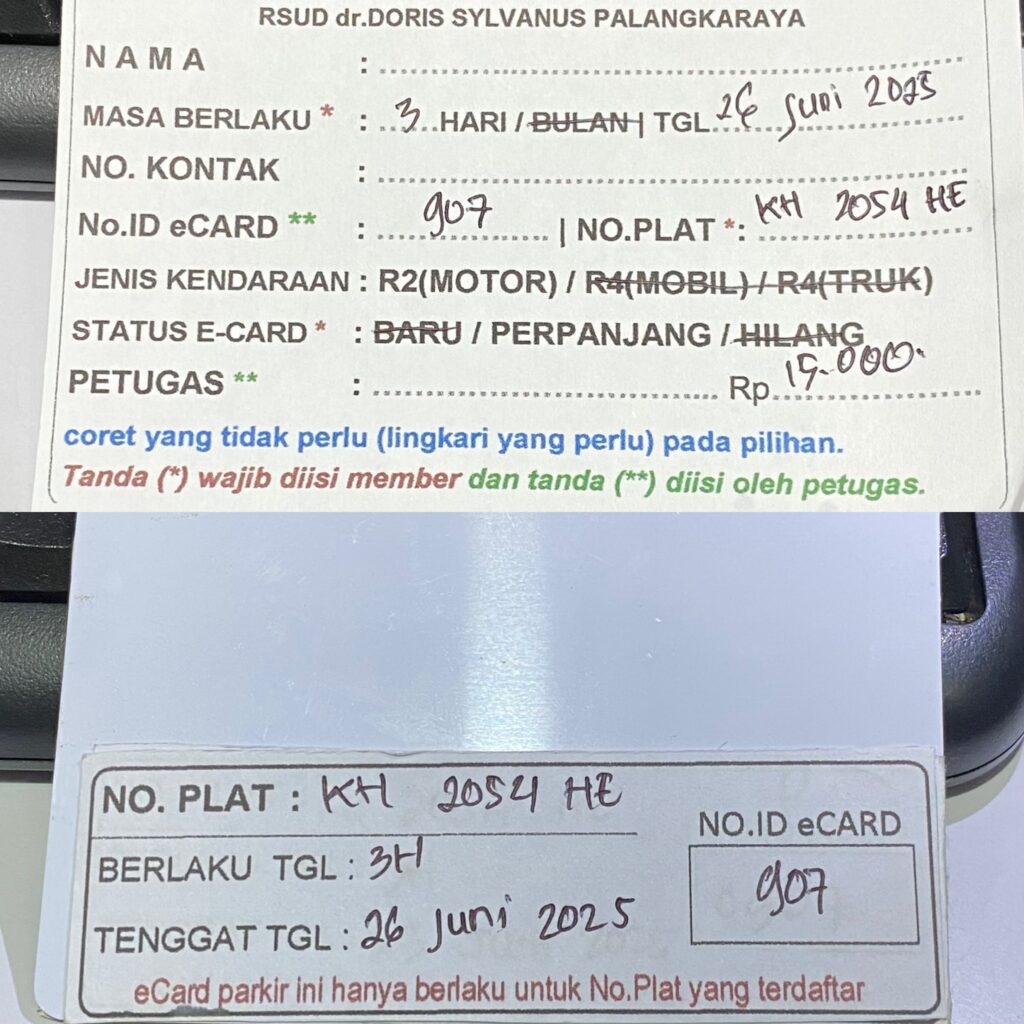 RSUD dr.DORIS SYLVANUS PALANGKARAYA
N A M A : ........................................
MASA BERLAKU * : ..3..HARI / BULAN | TGL 26 Juni 2025
NO. KONTAK : ........................................
No.ID eCARD ** : 907 | NO.PLAT *: KH 2054 HE
JENIS KENDARAAN : R2(MOTOR) / R4(MOBIL) / R4(TRUK)
STATUS E-CARD * : BARU / PERPANJANG / HILANG
PETUGAS ** : ........................................ Rp 15.000.
coret yang tidak perlu (lingkari yang perlu) pada pilihan.
Tanda (*) wajib diisi member dan tanda (**) diisi oleh petugas.
NO. PLAT : KH 2054 HE
BERLAKU TGL : 3H
TENGGAT TGL : 26 Juni 2025
NO.ID eCARD
907
eCard parkir ini hanya berlaku untuk No.Plat yang terdaftar